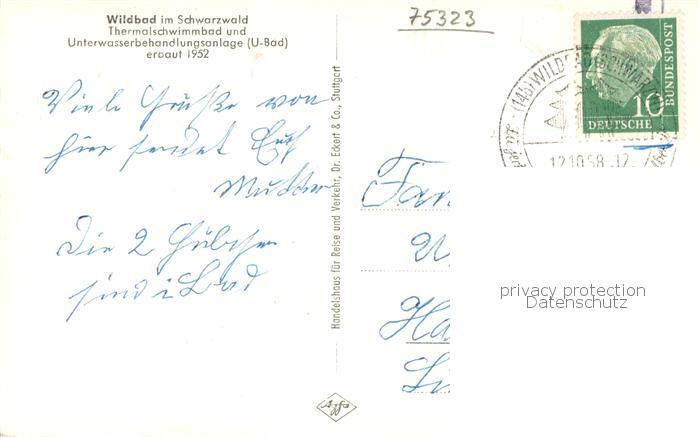 75323
Wildbad im Schwarzwald
Thermalschwimmbad und
Unterwasserbehandlungsanlage (U-Bad)
erbaut 1952
Viele Grüße von
hier sendet Euch
Mutter
Die 2 Hübschen
sind i Bad
Handelshaus für Reise und Verkehr, Dr. Eckert & Co., Stuttgart
Agfa
DEUTSCHE BUNDESPOST
10
(14b) WILDBAD (SCHWARZW
12.10.58.-12
Fam
Ha
privacy protection
Datenschutz